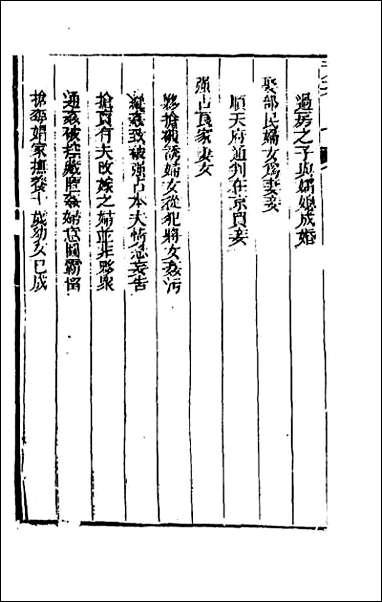 過房之子與媚娘成婚
娶部民婦女爲妻妾
順天府通判在京買妾
強占良家妻女
夥搶被誘婦女從犯將女姦污
縱姦致被強占本夫情急妄告
搶賣有夫改嫁之婦並非夥衆
通姦被控藏匿姦婦意圖霸留
搶奪娼家撫養十歲幼女已成